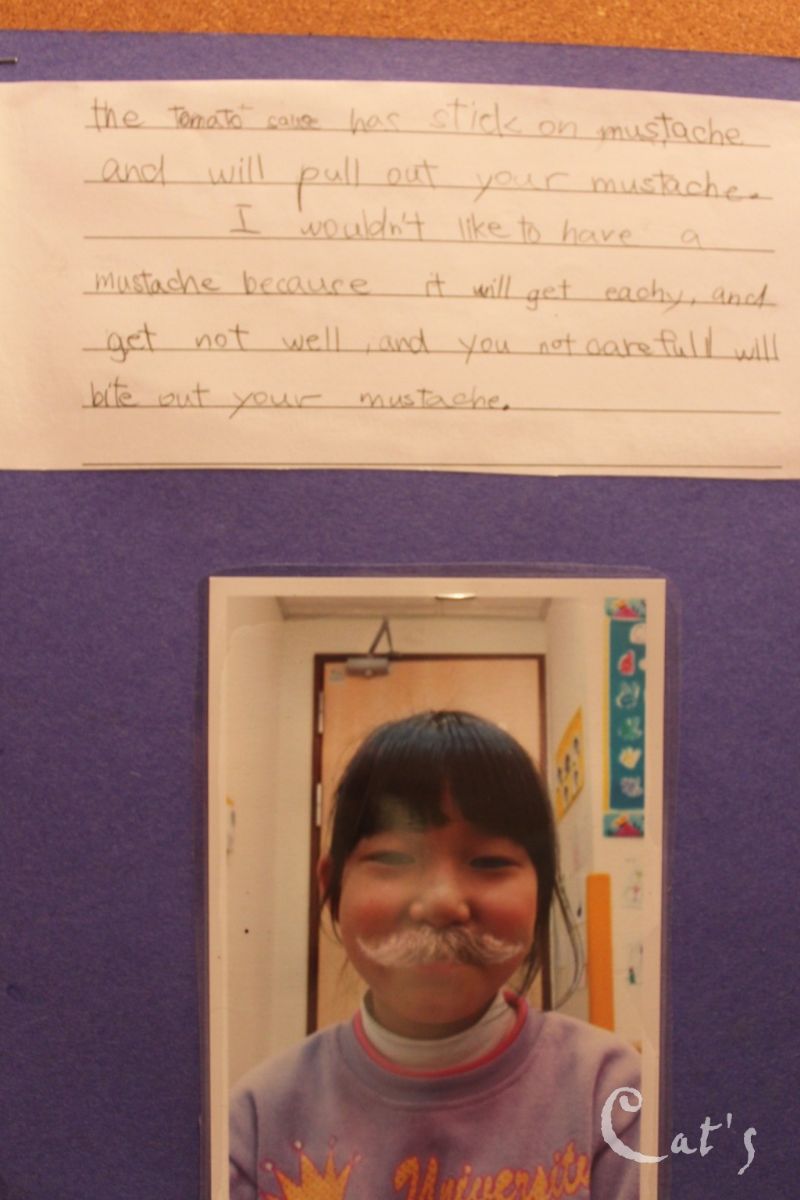 the tomato sause has stick on mustache
and will pull out your mustache.
I wouldn't like to have a
mustache because it will get eachy, and
get not well, and you not carefull will
bite out your mustache.
Universite
Cat's